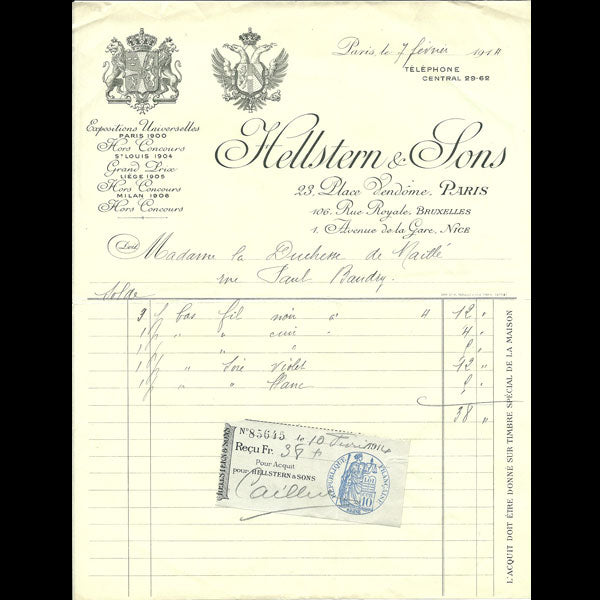 Paris, le 7 février 1914
TÉLÉPHONE
CENTRAL 29-62
Expositions Universelles
PARIS 1900
Hors Concours
ST LOUIS 1904
Grand Prix
LIÈGE 1905
Hors Concours
MILAN 1906
Hors Concours
Hellstern & Sons
23, Place Vendôme, PARIS
106, Rue Royale, BRUXELLES
1, Avenue de la Gare, NICE
Doit
Madame la Duchesse de Maillé
rue Paul Baudry
Solde
3 p bas fil noir à 4 12 "
1 p " " cuir 4 "
1 p " "
1 p " soie violet 12 "
1 p " " blanc
38 "
HELLSTERN & SONS
N° 85645 le 10 Février 1914
Reçu Fr. 38
Pour Acquit
pour HELLSTERN & SONS
RÉPUBLIQUE FRANÇAISE
LOI
10
L'ACQUIT DOIT ÊTRE DONNÉ SUR TIMBRE SPÉCIAL DE LA MAISON